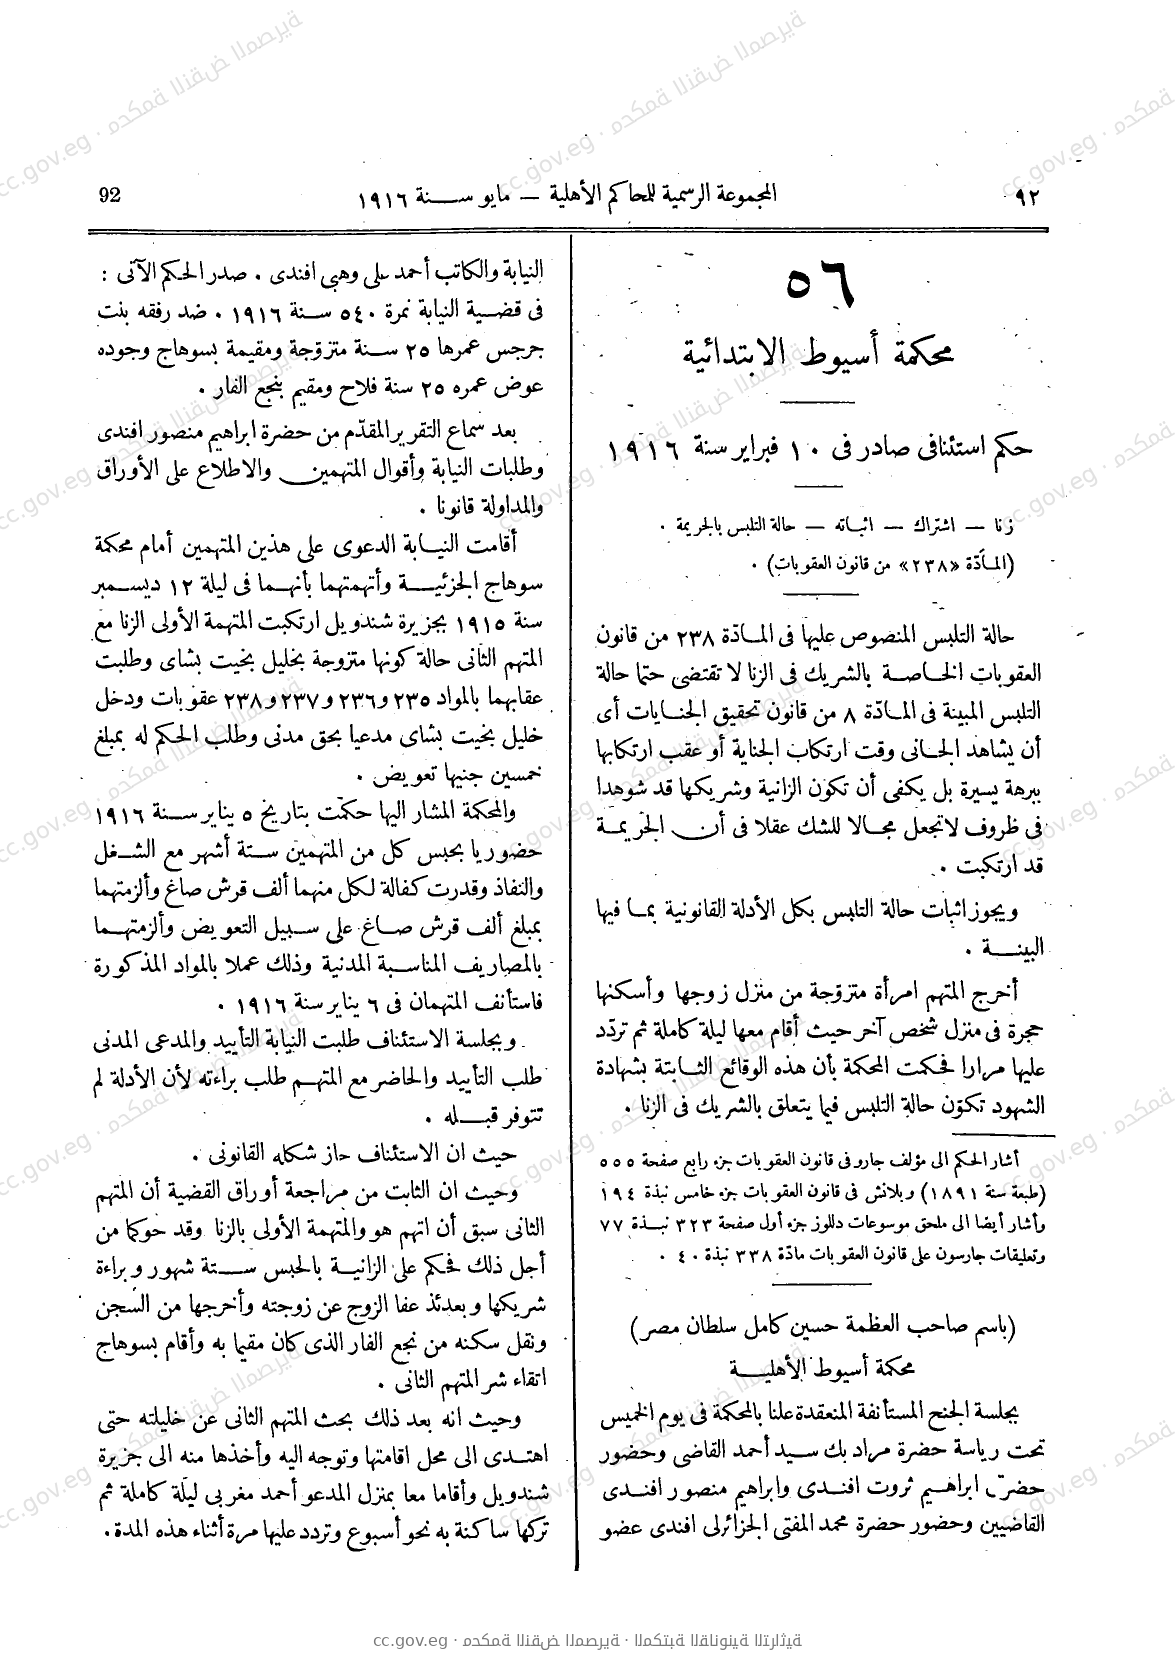 ٩٢
المجموعة الرسمية للمحاكم الأهلية — مايو سنة ١٩١٦
92
٥٦
محكمة أسيوط الابتدائية
حكم استئنافى صادر فى ١٠ فبراير سنة ١٩١٦
زنا — اشتراك — اثباته — حالة التلبس بالجريمة .
(المادّة «٢٣٨» من قانون العقوبات) .
حالة التلبس المنصوص عليها فى المادّة ٢٣٨ من قانون
العقوبات الخاصة بالشريك فى الزنا لا تقتضى حتما حالة
التلبس المبينة فى المادّة ٨ من قانون تحقيق الجنايات أى
أن يشاهد الجانى وقت ارتكاب الجناية أو عقب ارتكابها
ببرهة يسيرة بل يكفى أن تكون الزانية وشريكها قد شوهدا
فى ظروف لا تجعل مجالا للشك عقلا فى أن الجريمة
قد ارتكبت .
ويجوز اثبات حالة التلبس بكل الأدلة القانونية بما فيها
البينة .
أخرج المتهم امرأة متزوّجة من منزل زوجها وأسكنها
حجرة فى منزل شخص آخر حيث أقام معها ليلة كاملة ثم تردّد
عليها مرارا فحكمت المحكمة بأن هذه الوقائع الثابتة بشهادة
الشهود تكوّن حالة التلبس فيما يتعلق بالشريك فى الزنا .
أشار الحكم الى مؤلف جارو فى قانون العقوبات جزء رابع صفحة ٥٥٥
(طبعة سنة ١٨٩١) وبلانش فى قانون العقوبات جزء خامس نبذة ١٩٤
وأشار أيضا الى ملحق موسوعات دللوز جزء أول صفحة ٣٢٣ نبذة ٧٧
وتعليقات جارسون على قانون العقوبات مادّة ٣٣٨ نبذة ٤٠ .
(باسم صاحب العظمة حسين كامل سلطان مصر)
محكمة أسيوط الأهلية
بجلسة الجنح المستأنفة المنعقدة علنا بالمحكمة فى يوم الخميس
تحت رياسة حضرة مراد بك سيد أحمد القاضى وحضور
حضرتى ابراهيم ثروت افندى وابراهيم منصور افندى
القاضيين وحضور حضرة محمد المفتى الجزائرلى افندى عضو
النيابة والكاتب أحمد على وهبى افندى . صدر الحكم الآتى :
فى قضية النيابة نمرة ٥٤٠ سنة ١٩١٦ . ضد رفقه بنت
جرجس عمرها ٢٥ سنة متزوّجة ومقيمة بسوهاج وجوده
عوض عمره ٢٥ سنة فلاح ومقيم بنجع الفار .
بعد سماع التقرير المقدّم من حضرة ابراهيم منصور افندى
وطلبات النيابة وأقوال المتهمين والاطلاع على الأوراق
والمداولة قانونا .
أقامت النيابة الدعوى على هذين المتهمين أمام محكمة
سوهاج الجزئية وأتهمتهما بأنهما فى ليلة ١٢ ديسمبر
سنة ١٩١٥ بجزيرة شندويل ارتكبت المتهمة الأولى الزنا مع
المتهم الثانى حالة كونها متزوجة بخليل بخيت بشاى وطلبت
عقابهما بالمواد ٢٣٥ و٢٣٦ و٢٣٧ و٢٣٨ عقوبات ودخل
خليل بخيت بشاى مدعيا بحق مدنى وطلب الحكم له بمبلغ
خمسين جنيها تعويض .
والمحكمة المشار اليها حكمت بتاريخ ٥ يناير سنة ١٩١٦
حضوريا بحبس كل من المتهمين ستة أشهر مع الشغل
والنفاذ وقدرت كفالة لكل منهما ألف قرش صاغ وألزمتهما
بمبلغ ألف قرش صاغ على سبيل التعويض وألزمتهما
بالمصاريف المناسبة المدنية وذلك عملا بالمواد المذكورة
فاستأنف المتهمان فى ٦ يناير سنة ١٩١٦ .
وبجلسة الاستئناف طلبت النيابة التأييد والمدعى المدنى
طلب التأييد والحاضر مع المتهم طلب براءته لأن الأدلة لم
تتوفر قبله .
حيث ان الاستئناف حاز شكله القانونى .
وحيث ان الثابت من مراجعة أوراق القضية أن المتهم
الثانى سبق أن اتهم هو والمتهمة الأولى بالزنا وقد حوكما من
أجل ذلك فحكم على الزانية بالحبس ستة شهور وبراءة
شريكها وبعدئذ عفا الزوج عن زوجته وأخرجها من السجن
ونقل سكنه من نجع الفار الذى كان مقيما به وأقام بسوهاج
اتقاء شر المتهم الثانى .
وحيث انه بعد ذلك بحث المتهم الثانى عن خليلته حتى
اهتدى الى محل اقامتها وتوجه اليه وأخذها منه الى جزيرة
شندويل وأقاما معا بمنزل المدعو أحمد مغربى ليلة كاملة ثم
تركها ساكنة به نحو أسبوع وتردد عليها مرة أثناء هذه المدة .
cc.gov.eg · محكمة النقض المصرية · المكتبة القانونية التراثية